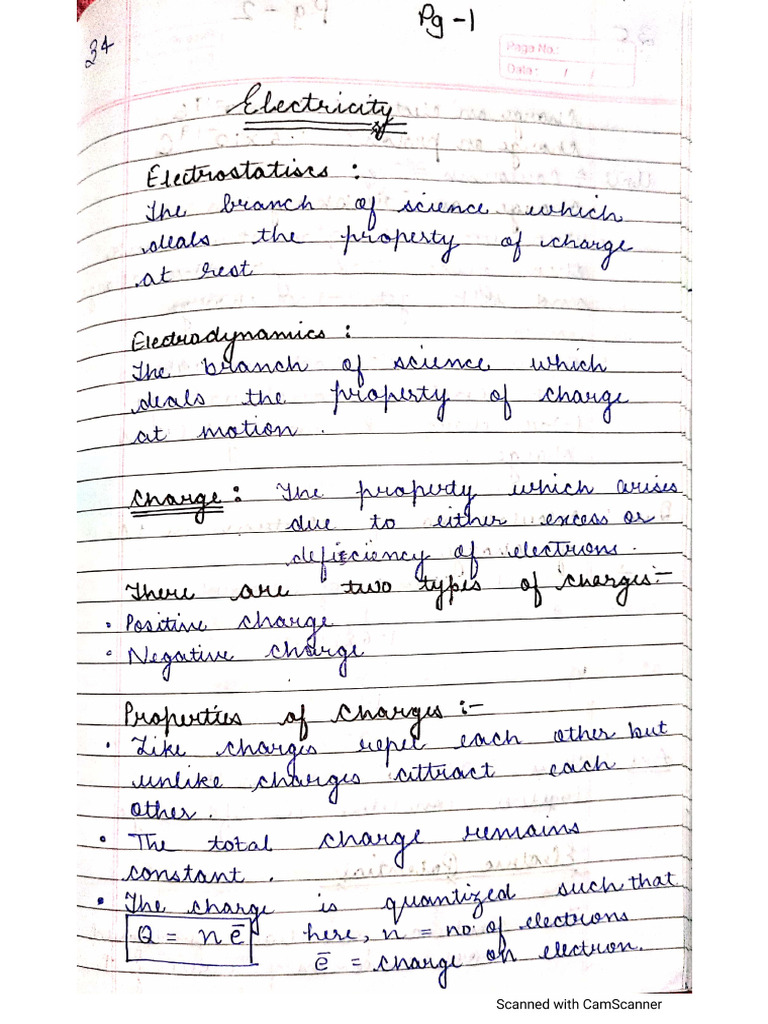 Pg-1
34
Page No.:
Date: / /
Electricity
Electrostatiscs :
The branch of science which
deals the property of charge
at rest
Electrodynamics :
The branch of science which
deals the property of charge
at motion.
Charge : The property which arises
due to either excess or
deficiency of electrons.
There are two types of charges:-
• Positive charge
• Negative charge
Properties of Charges :-
• Like charges repel each other but
unlike charges attract each
other.
• The total charge remains
constant.
• The charge is quantized such that
Q = n e̅ here, n = no. of electrons
e̅ = charge on electron.
Scanned with CamScanner